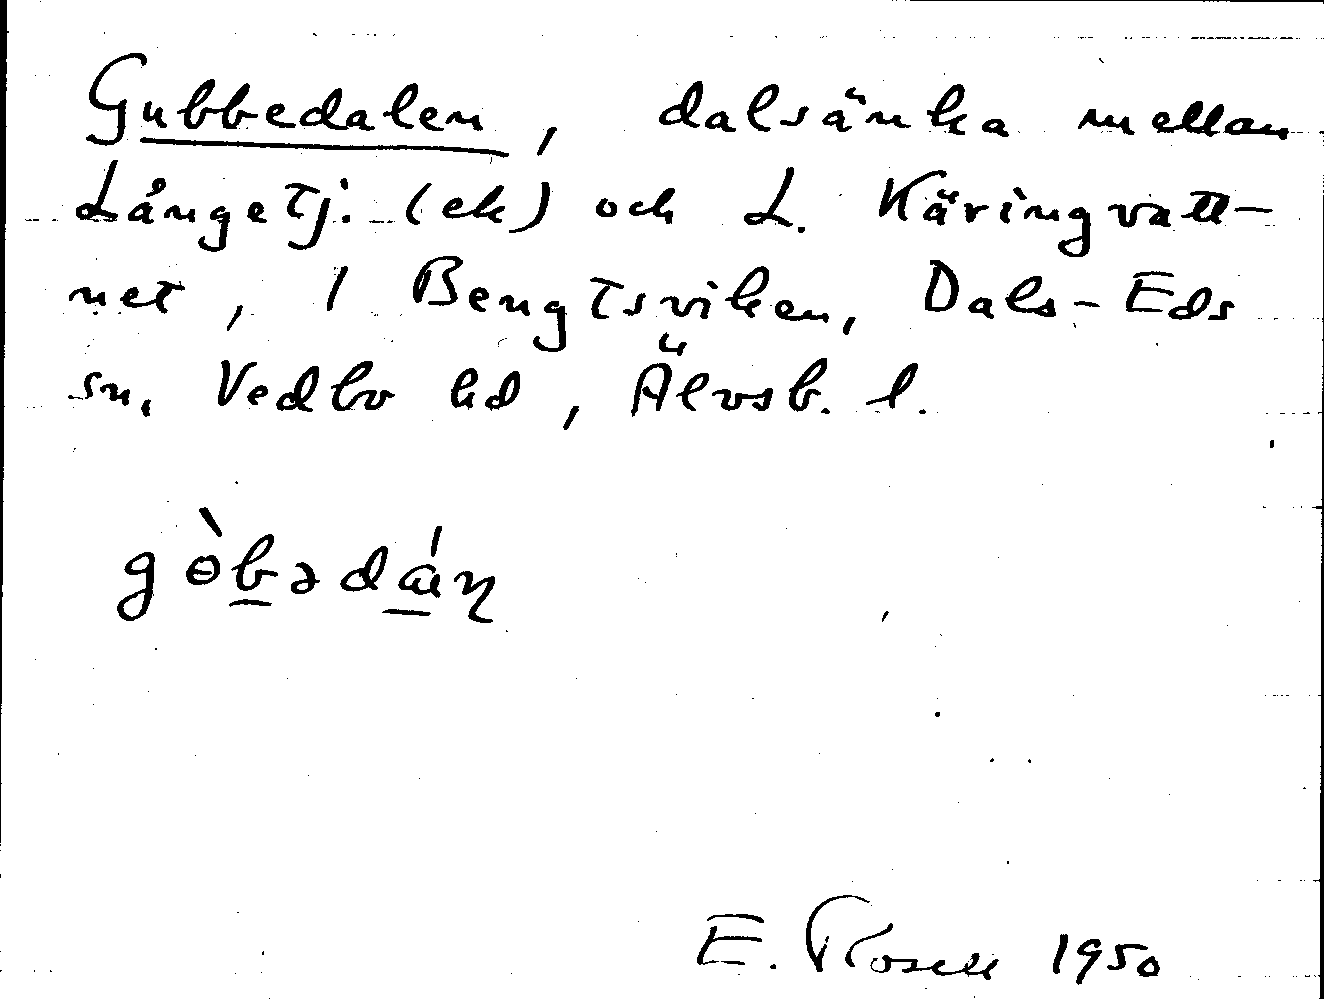 Gubbedalen, dalsänka mellan
Långetj. (ek) och L. Käringvatt-
net, 1 Bengtsviken, Dals-Eds
sn, Vedbo hd, Älvsb. l.
gɵ̀b̲ədá̲n̥
E. Rosell 1950